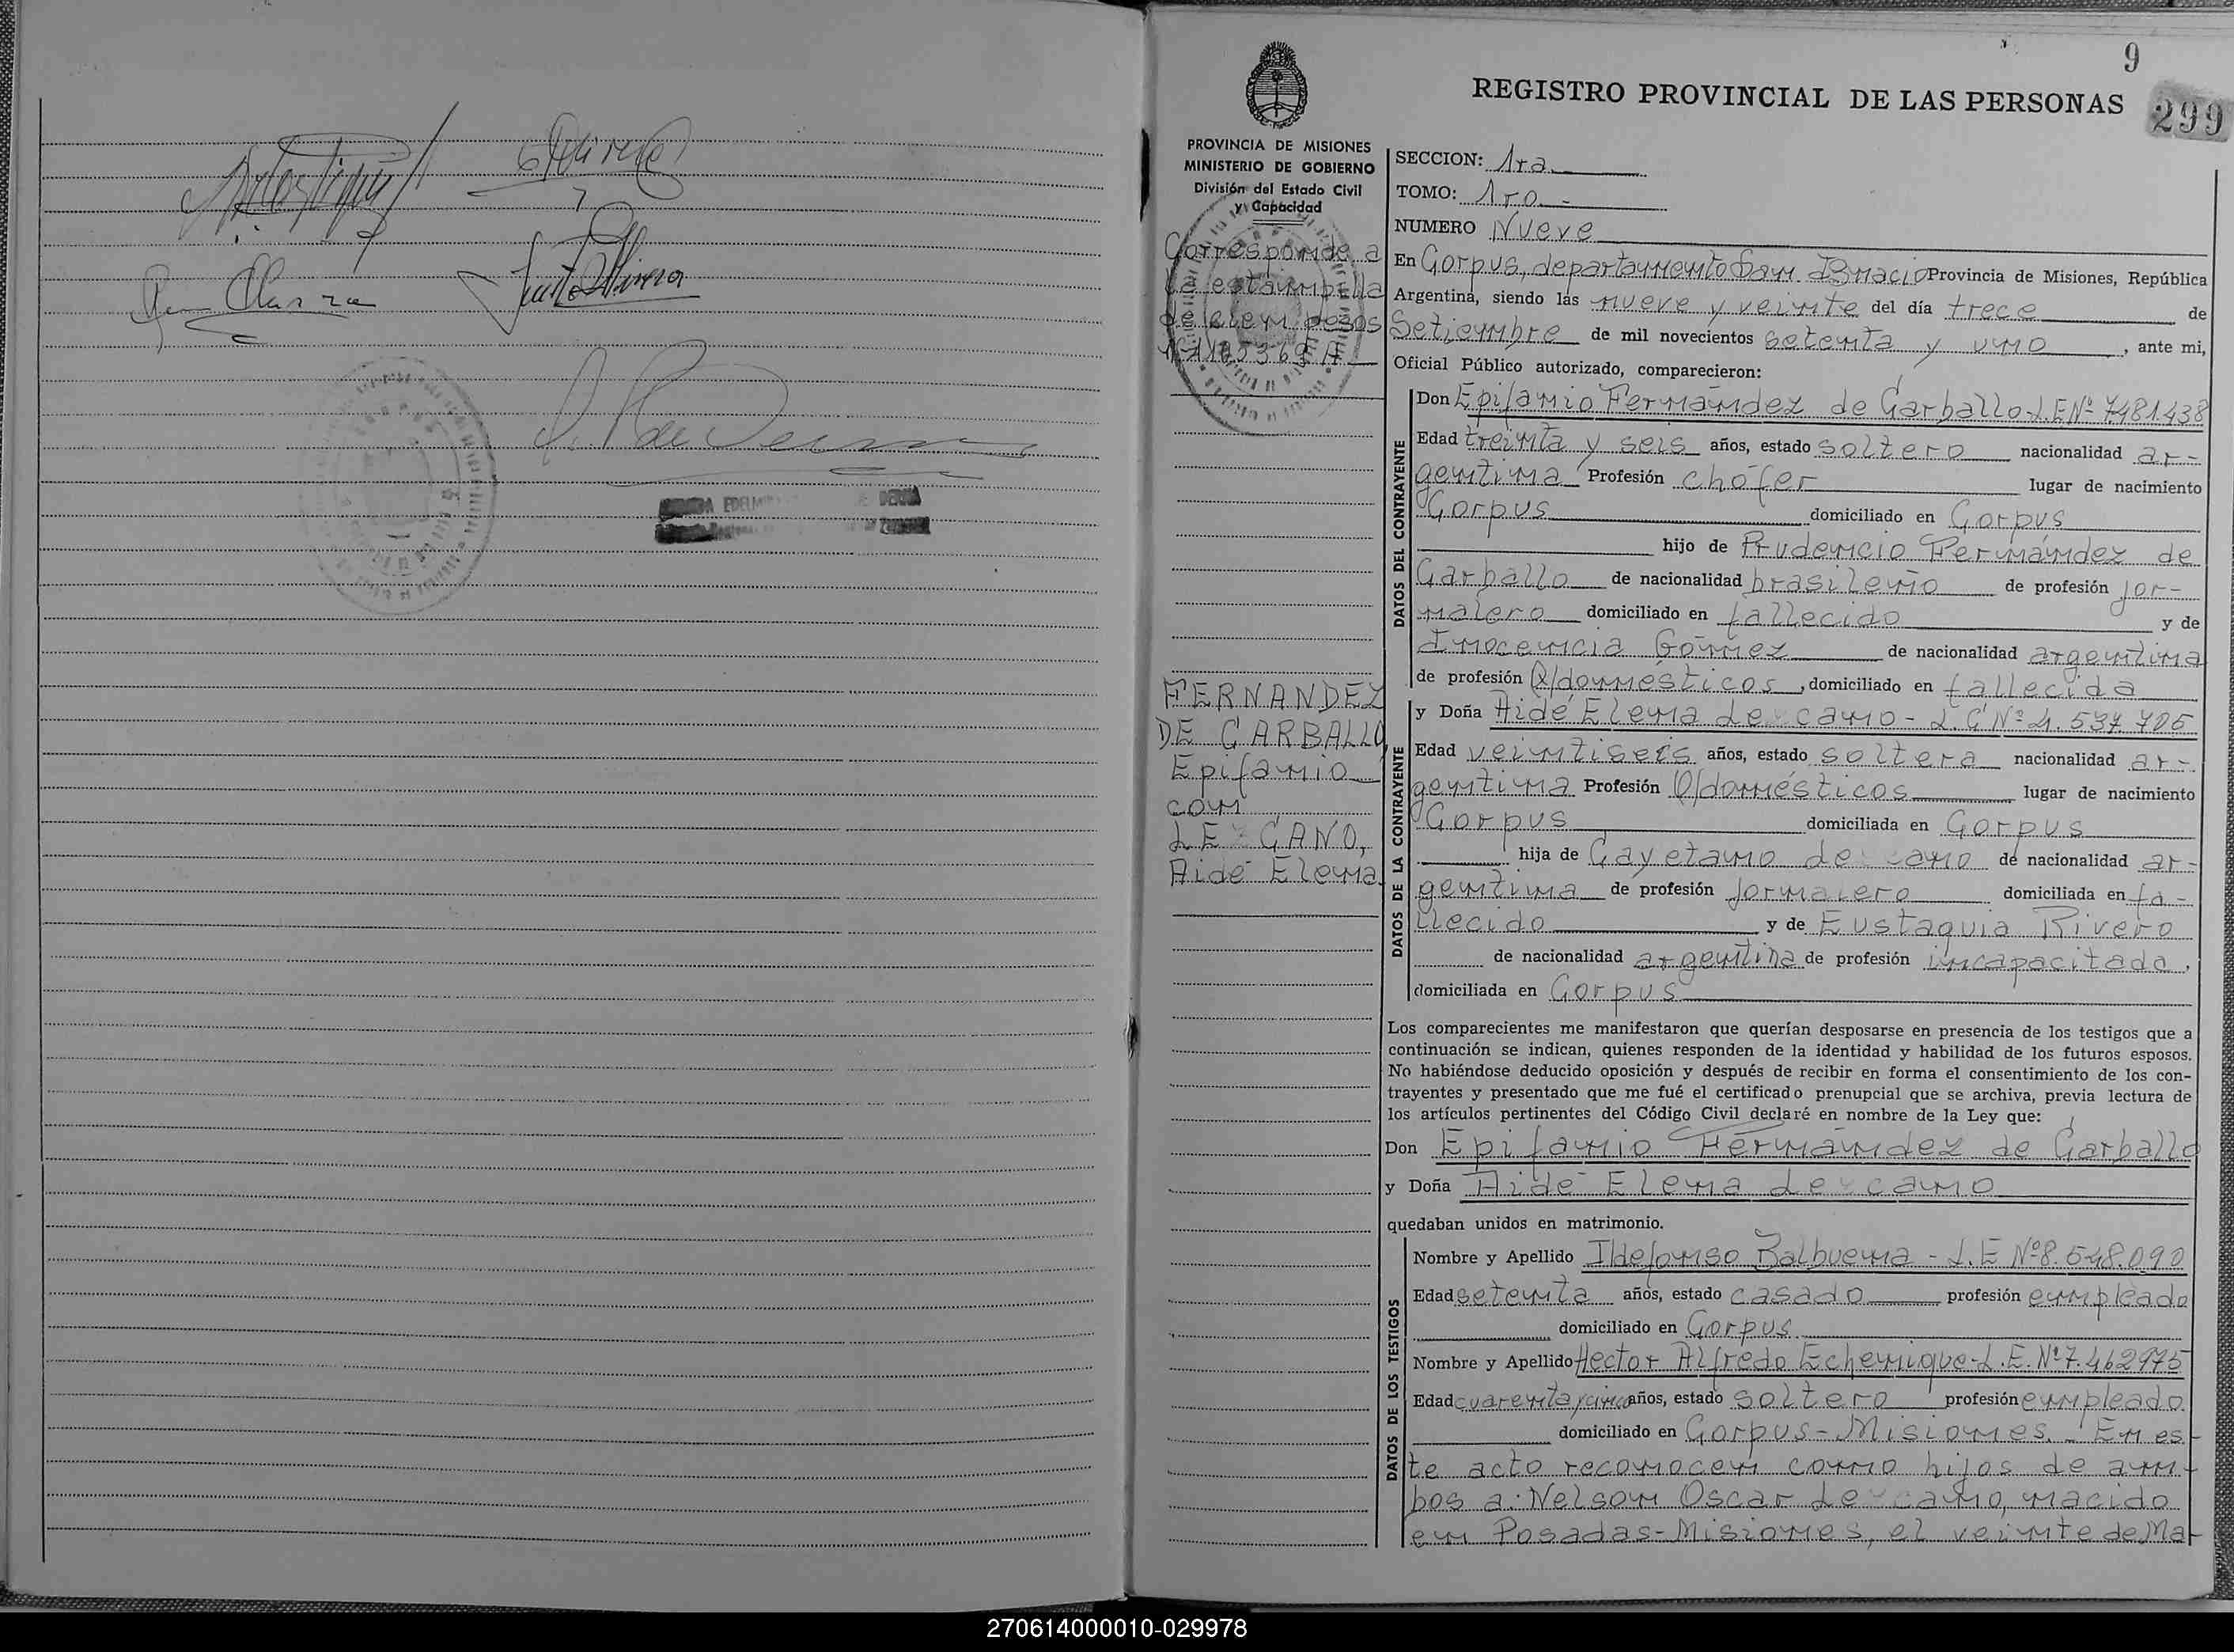 9
REGISTRO PROVINCIAL DE LAS PERSONAS
299
PROVINCIA DE MISIONES
MINISTERIO DE GOBIERNO
División del Estado Civil
y Capacidad
Corresponde a
la estampilla
de cien pesos
FERNANDEZ
DE CARBALLO
Epifanio
con
LE CANO,
Aidé Elena
SECCION: 1ra
TOMO: 1ro.-
NUMERO Nueve
En Corpus, departamento San Ignacio Provincia de Misiones, República
Argentina, siendo las nueve y veinte del día trece de
Setiembre de mil novecientos setenta y uno, ante mi,
Oficial Público autorizado, comparecieron:
DATOS DEL CONTRAYENTE
Don Epifanio Fernández de Carballo-L.E.Nº 7481438
Edad treinta y seis años, estado soltero nacionalidad ar-
gentina Profesión chófer lugar de nacimiento
Corpus domiciliado en Corpus
hijo de Prudencio Fernández de
Carballo de nacionalidad brasileño de profesión jor-
nalero domiciliado en fallecido y de
Inocencia Gómez de nacionalidad argentina
de profesión Q/domésticos, domiciliado en fallecida
DATOS DE LA CONTRAYENTE
y Doña Aidé Elena Le cano - L.C Nº 4.537.705
Edad veintiseis años, estado soltera nacionalidad ar-
gentina Profesión Q/domésticos lugar de nacimiento
Corpus domiciliada en Corpus
hija de Cayetano Le cano de nacionalidad ar-
gentina de profesión jornalero domiciliada en fa-
llecido y de Eustaquia Rivero
de nacionalidad argentina de profesión incapacitada,
domiciliada en Corpus
Los comparecientes me manifestaron que querían desposarse en presencia de los testigos que a
continuación se indican, quienes responden de la identidad y habilidad de los futuros esposos.
No habiéndose deducido oposición y después de recibir en forma el consentimiento de los con-
trayentes y presentado que me fué el certificado prenupcial que se archiva, previa lectura de
los artículos pertinentes del Código Civil declaré en nombre de la Ley que:
Don Epifanio Fernández de Carballo
y Doña Aidé Elena Le cano
quedaban unidos en matrimonio.
DATOS DE LOS TESTIGOS
Nombre y Apellido Ildefonso Balbuena - L.E Nº8.548.090
Edad setenta años, estado casado profesión empleado
domiciliado en Corpus
Nombre y Apellido Hector Alfredo Echenique-L.E.Nº7.462975
Edad cuarenta y cinco años, estado soltero profesión empleado
domiciliado en Corpus-Misiones. En es-
te acto reconocen como hijos de am-
bos a: Nelson Oscar Le cano, nacido
en Posadas-Misiones, el veinte de Ma-
270614000010-029978